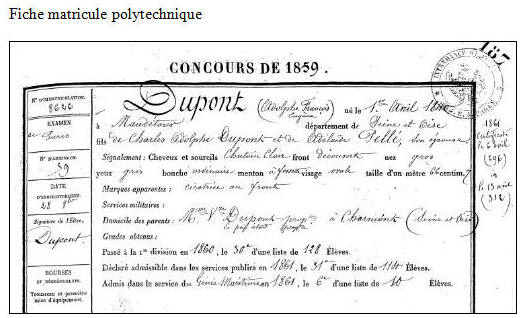 Fiche matricule polytechnique
187
CONCOURS DE 1859.
N° D'IMMATRICULATION.
8626
EXAMEN
de Paris
N° D'ADMISSION.
39
DATE
Signature de l'Élève.
Dupont.
BOURSES
Trousseau et première
mise d'équipement.
Dupont (Adolphe François Eugène) né le 1er Avril
à Maudétour département de Seine et Oise
fils de Charles Adolphe Dupont et de Adélaïde Pellé, son épouse
Signalement : Cheveux et sourcils Châtain Clair front découvert nez gros
yeux gris bouche ordinaire menton à fossette visage ovale taille d'un mètre centim.
Marques apparentes : cicatrice au front
Services militaires :
Domicile des parents : Mme Vve Dupont à Charmont (Seine et Oise)
Grades obtenus :
Passé à la 1re division en 1860, le 30e d'une liste de 128 Élèves.
Déclaré admissible dans les services publics en 1861, le 31e d'une liste de 114 Élèves.
Admis dans le service du Génie Maritime en 1861, le 6e d'une liste de 10 Élèves.
1861
Certificat